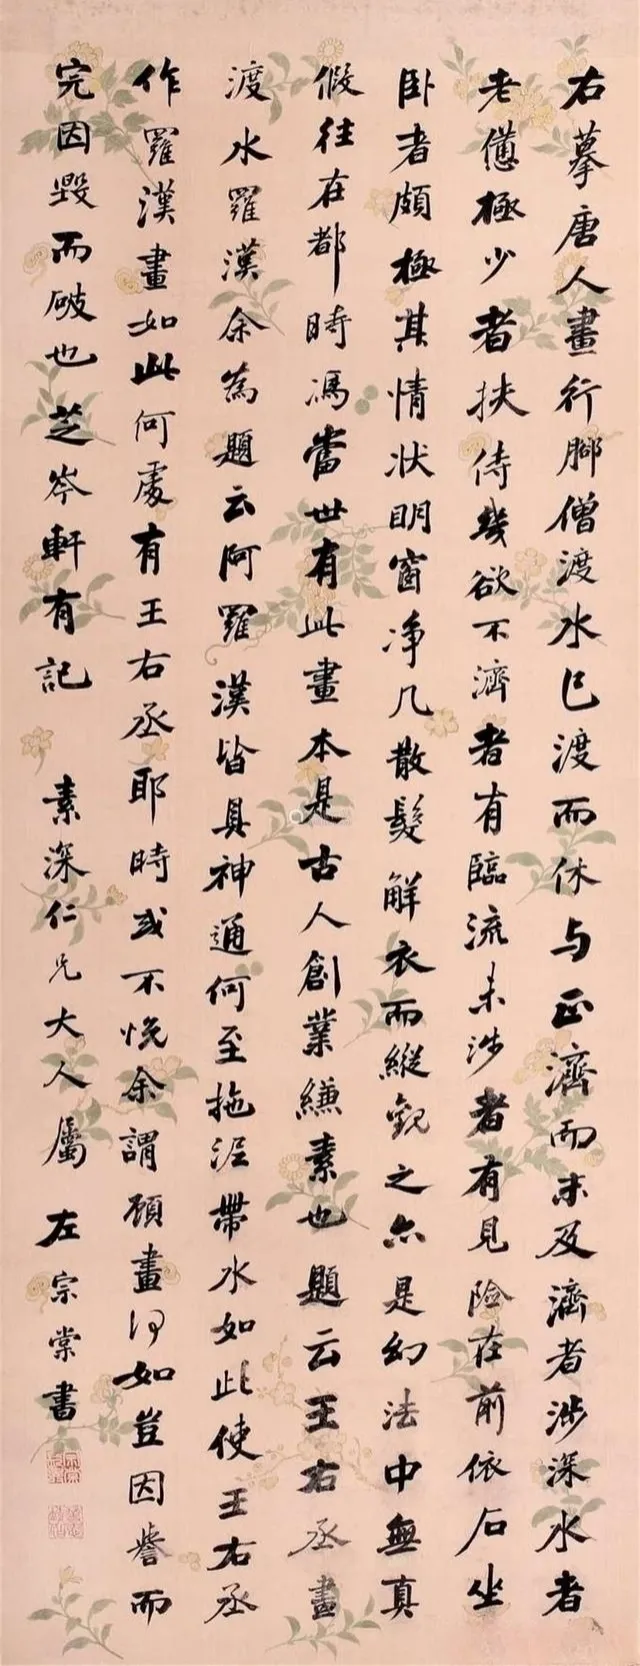 右摹唐人畫行腳僧渡水已渡而休与正濟而未及濟者涉深水者
老憊極少者扶侍幾欲不濟者有臨流未涉者有見險在前依石坐
卧者頗極其情狀明窗净几散髮解衣而縱觀之亦是幻法中無真
假往在都時馮當世有此畫本是古人創業縑素也題云王右丞畫
渡水羅漢余為題云阿羅漢皆具神通何至拖泥帶水如此使王右丞
作羅漢畫如此何處有王右丞耶時或不悅余謂顧畫何如豈因譽而
完因毀而破也芝岑軒有記 素深仁兄大人屬 左宗棠書